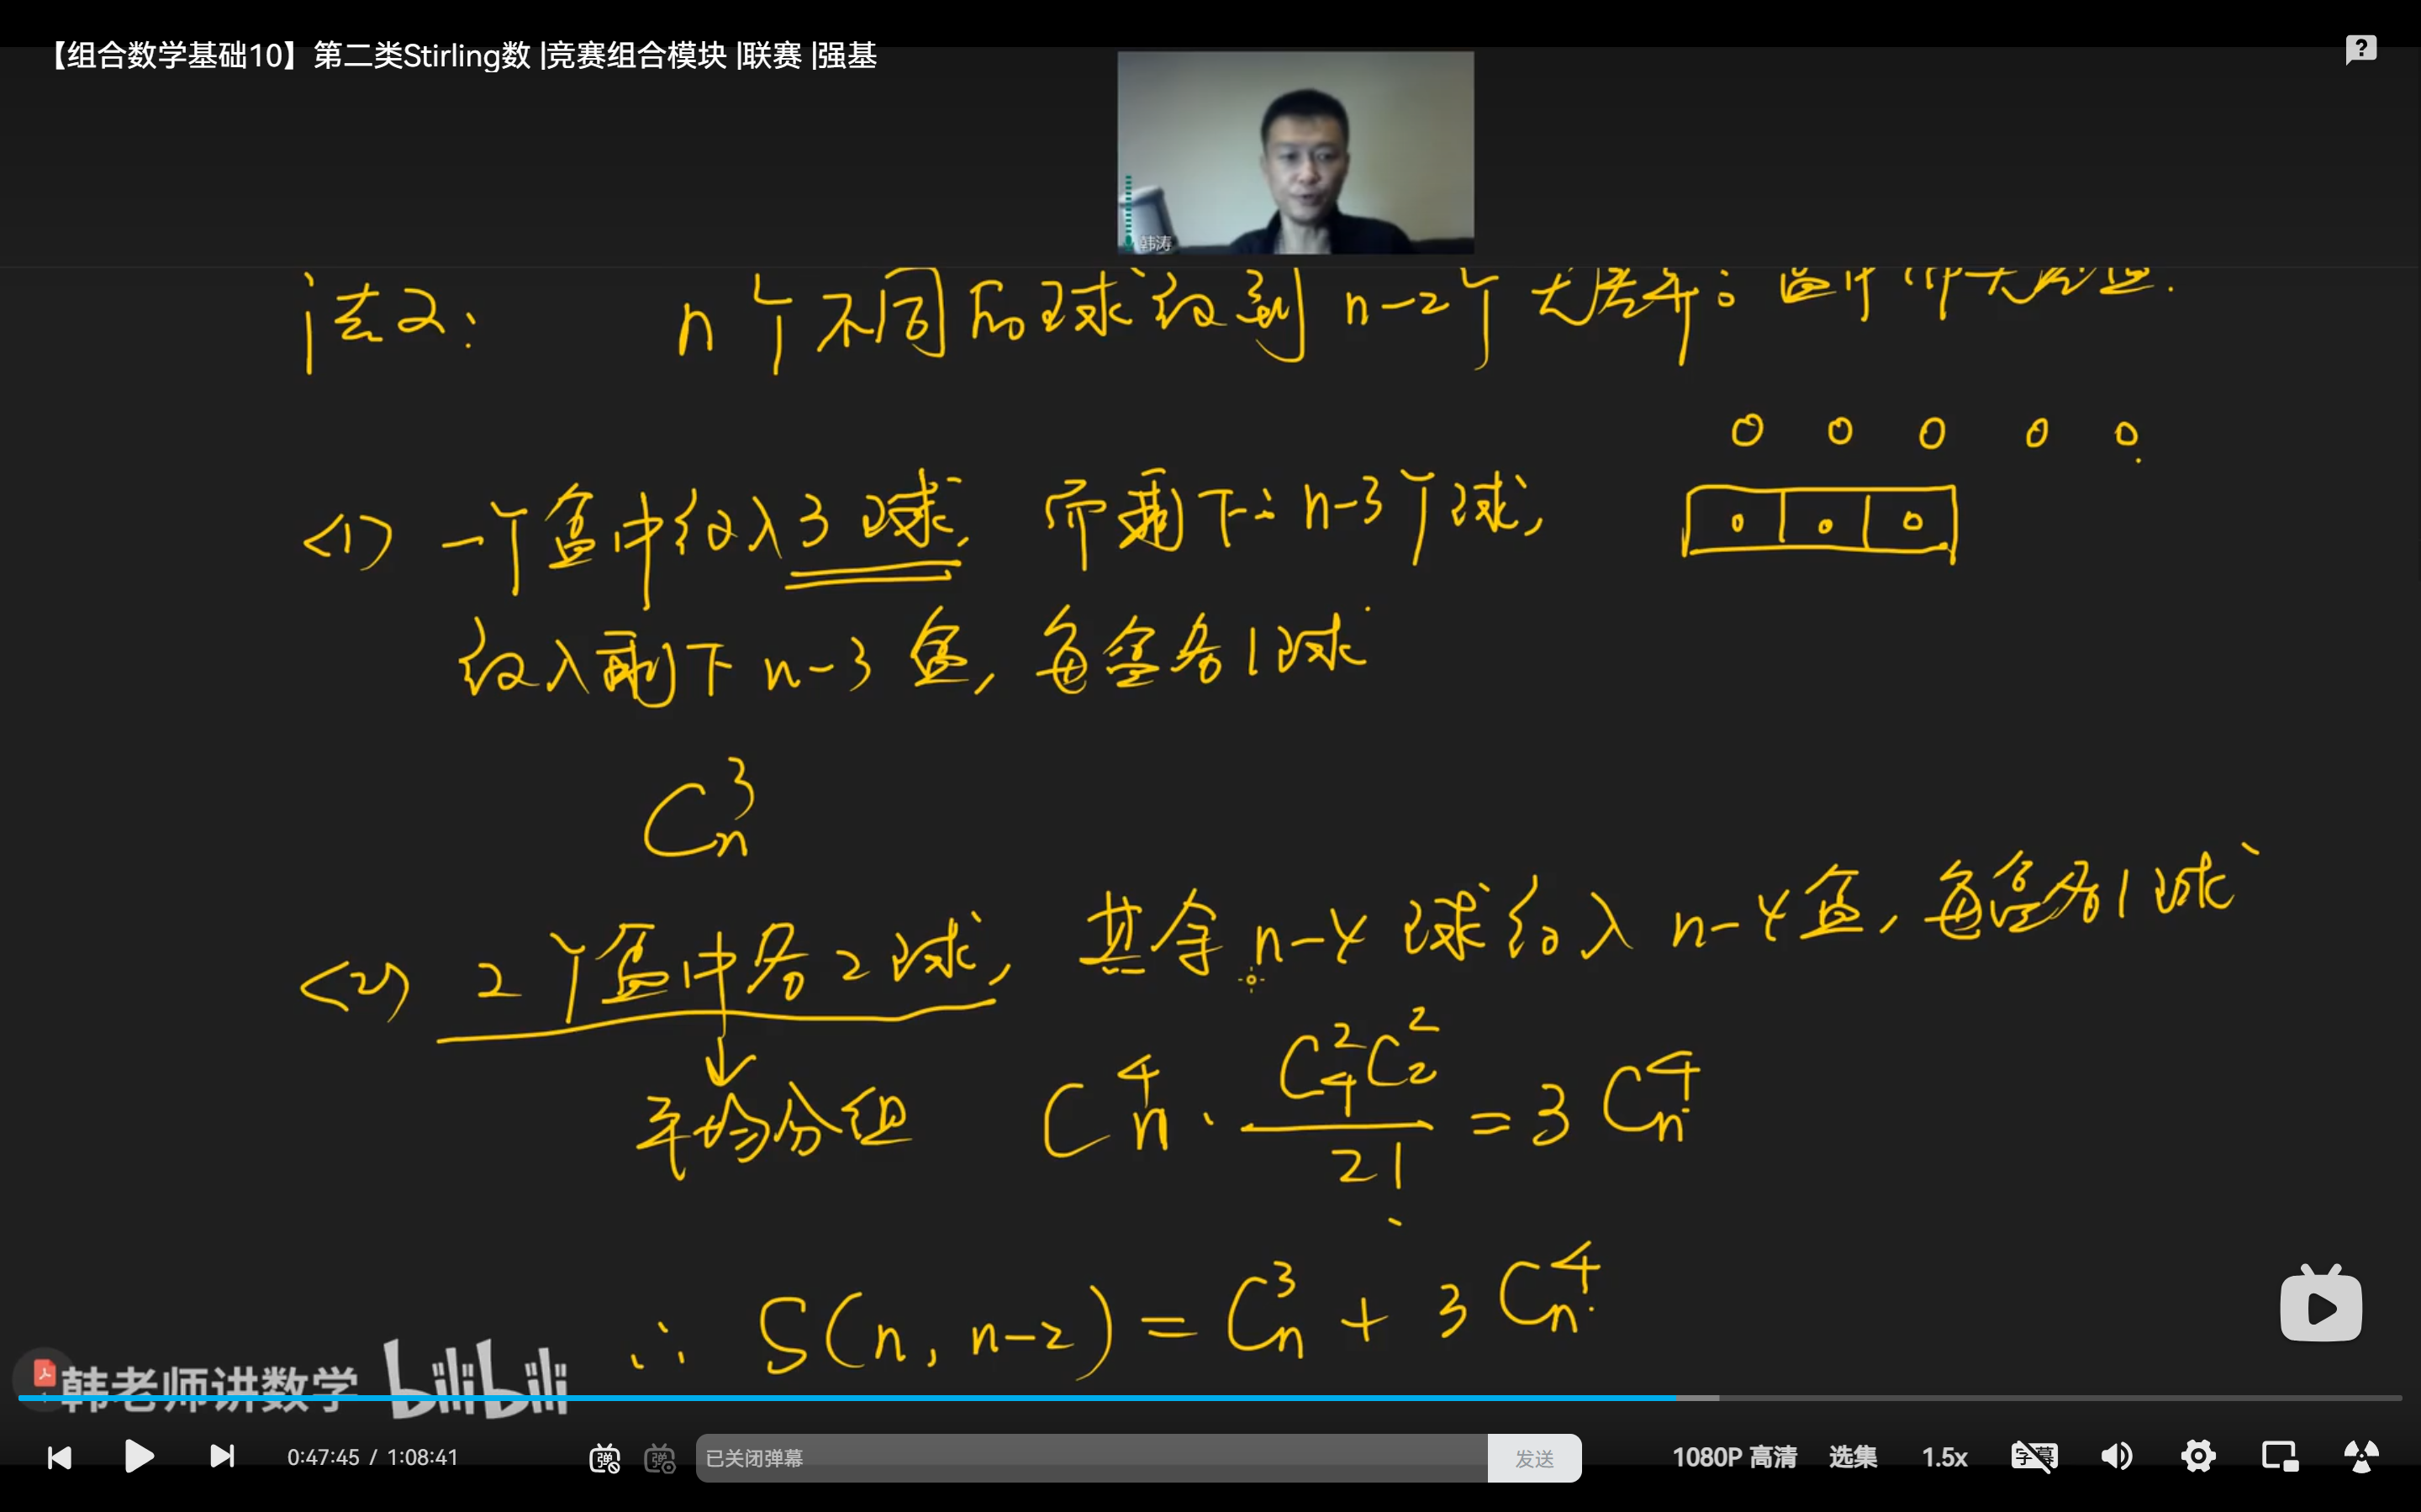 【组合数学基础10】第二类Stirling数 |竞赛组合模块 |联赛 |强基
韩涛
法2: n个不同的球放到n-2个无差异
<1> 一个盒中放入3球, 而剩下 n-3个球,
放入剩下 n-3 盒, 每盒各1球
C_n^3
<2> 2个盒中各2球, 其余 n-4 球放入 n-4盒, 每盒各1球
平均分组 C_n^4 · \frac{C_4^2 C_2^2}{2!} = 3 C_n^4
∴ S(n, n-2) = C_n^3 + 3 C_n^4
韩老师讲数学 bilibili
0:47:45 / 1:08:41 弹 弹 已关闭弹幕 发送 1080P 高清 选集 1.5x 字幕